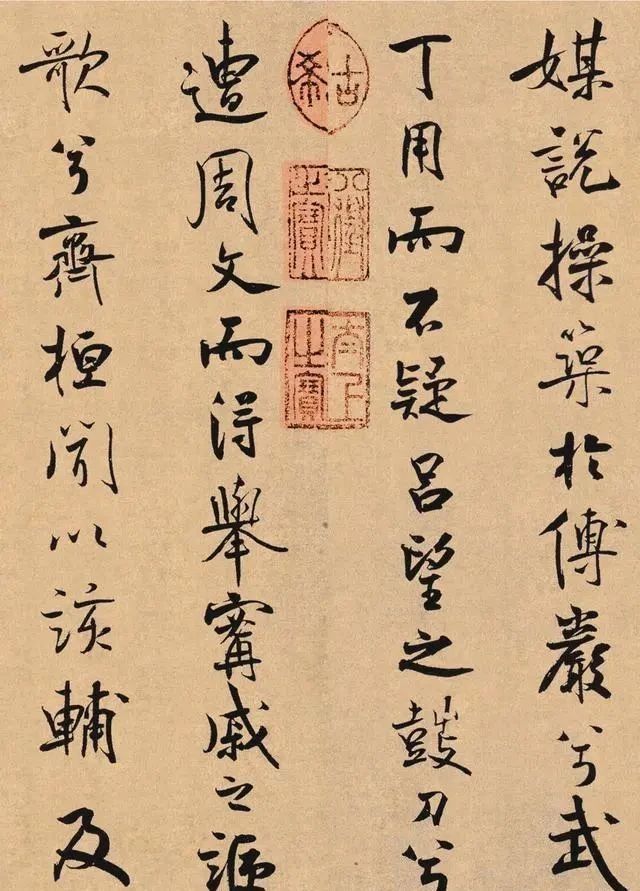 媒說操築於傅巖兮武
丁用而不疑呂望之鼓刀兮
古希
八徵之寶
太上之寶
遭周文而得舉甯戚之謳
歌兮齊桓聞以該輔及